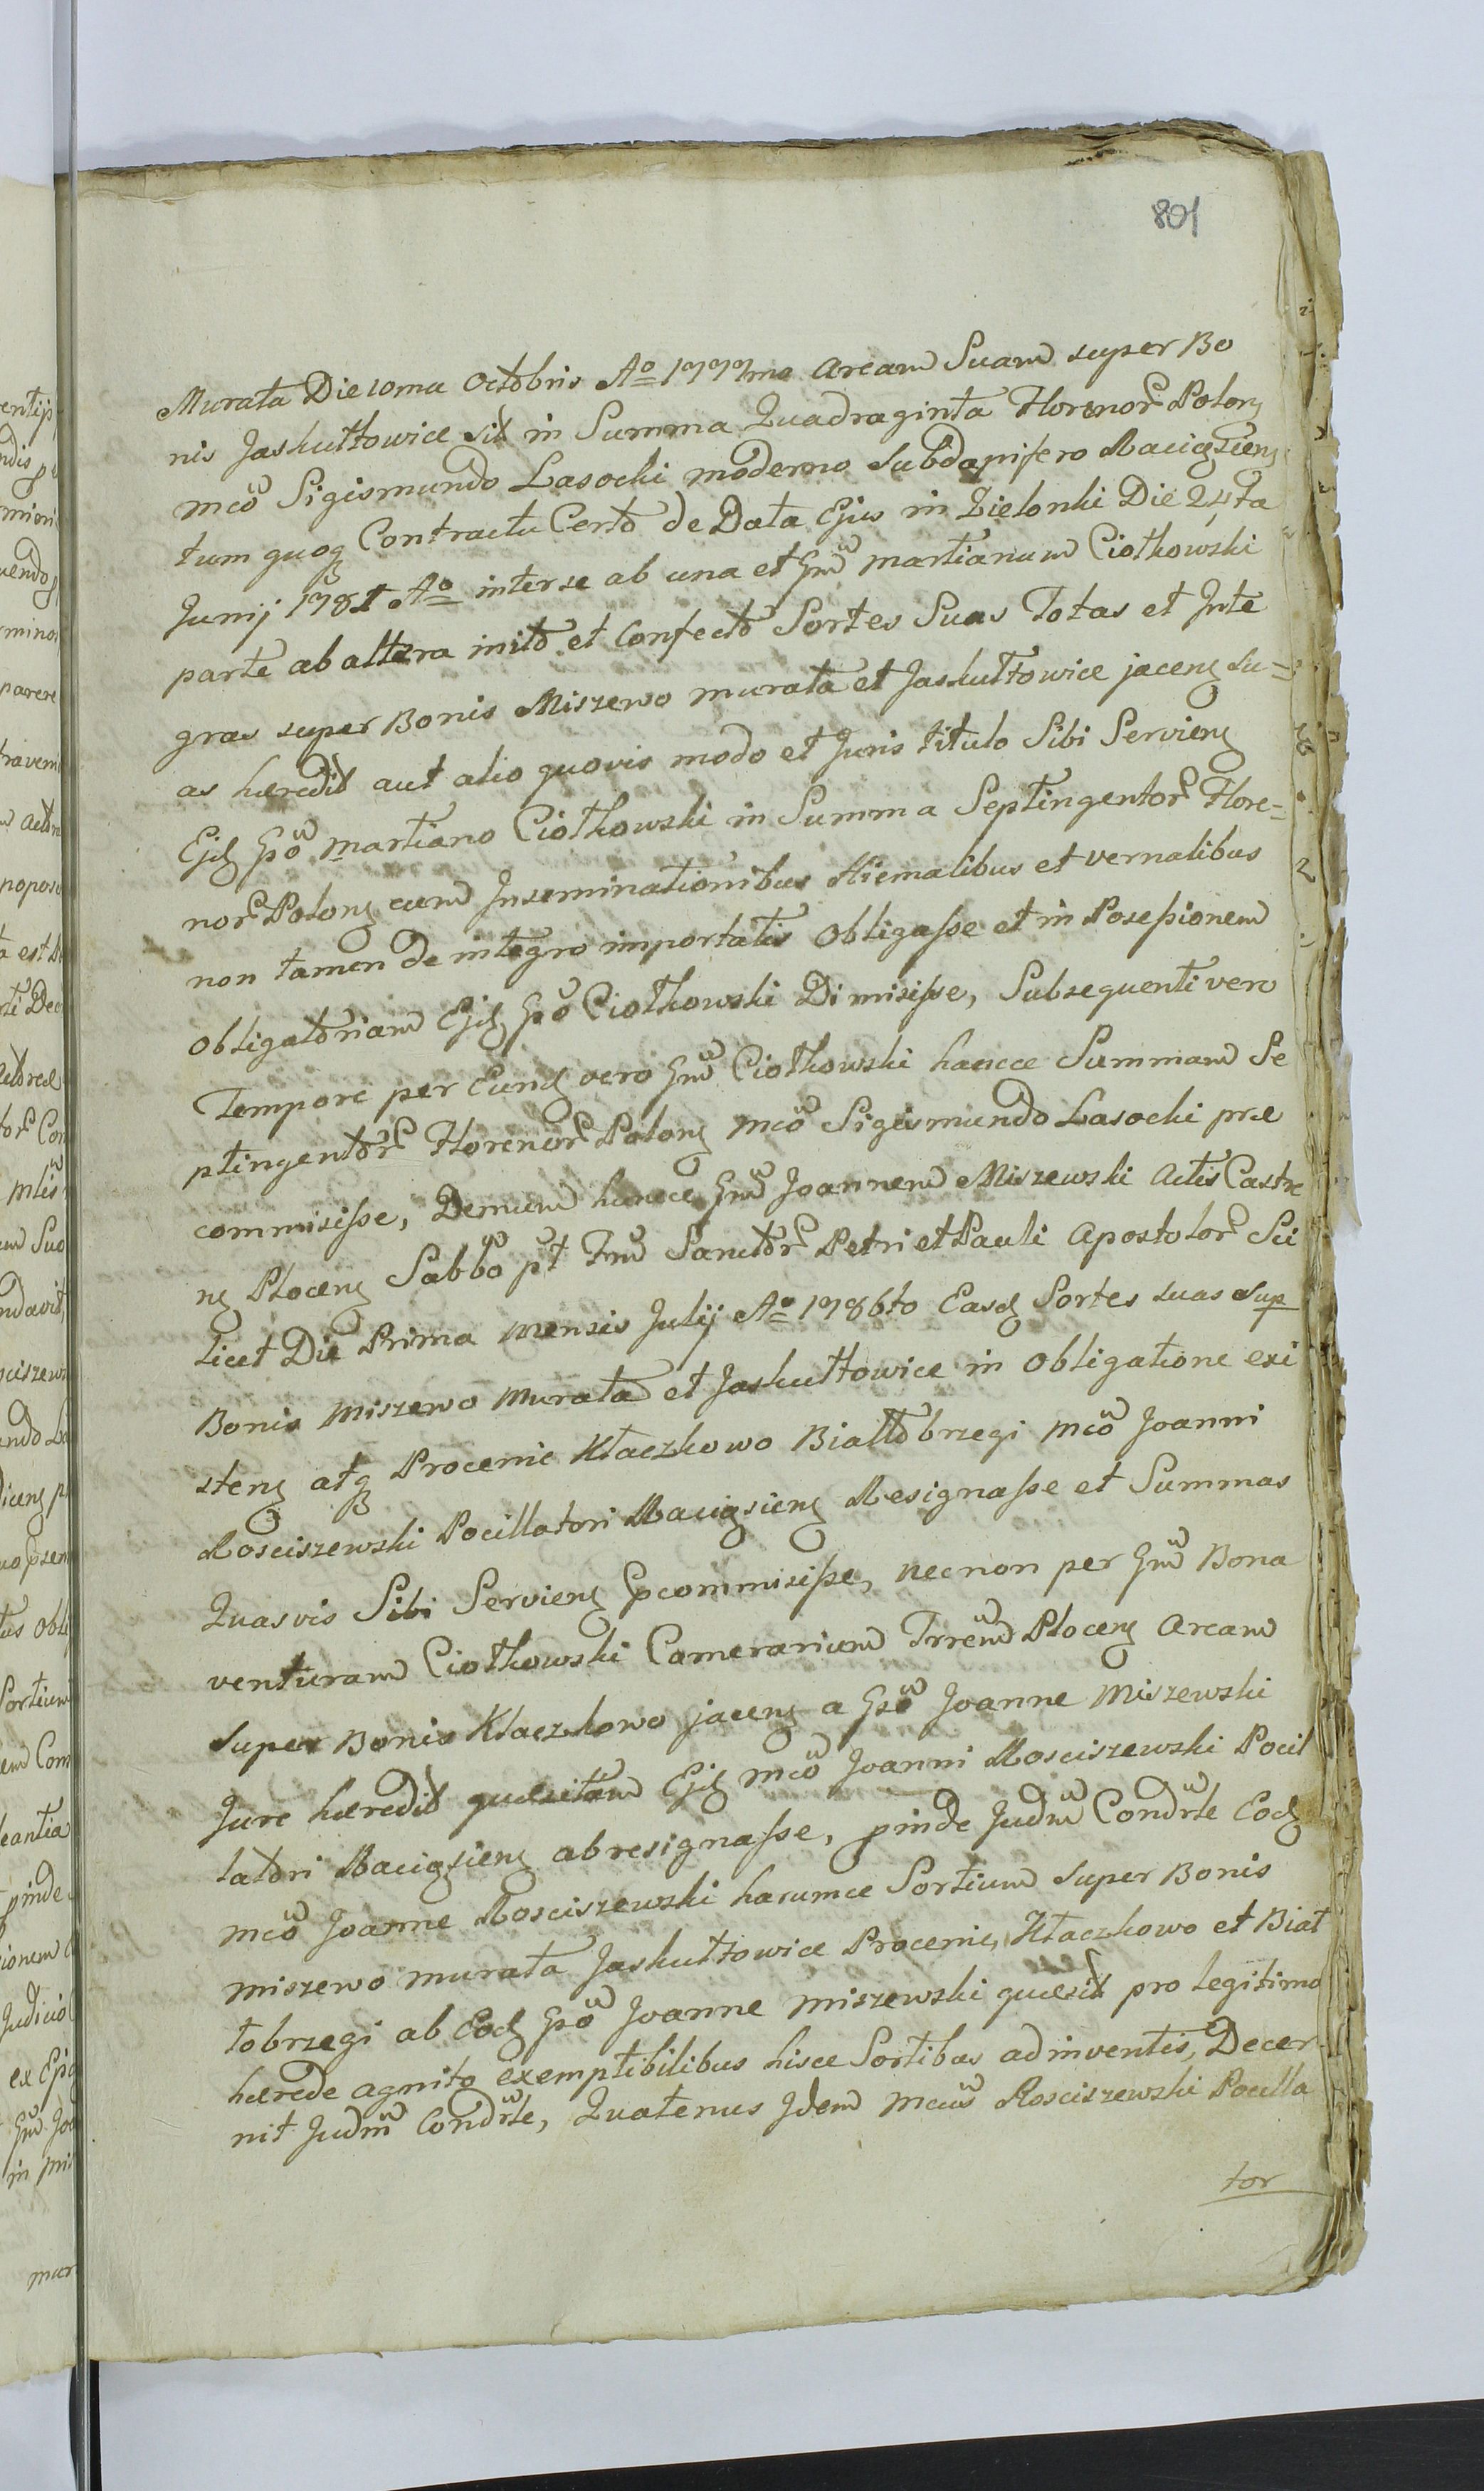 801
Murata Die 10ma Octobris Ao 1777mo Aream Suam super Bo
nis Jaskułtowice sit in Summa Quadraginta Florenor Polon
Mco Sigismundo Lasocki moderno Subdapifero Raciążien
tum quoq Contractu Certo de Data Ejus in Zielonki Die 24ta
Junij 1781 Ao inter se ab una et Gnm Martianum Ciołkowski
parte ab altera inito et Confecto Sortes Suas Totas et Inte
gras super Bonis Miszewo Murata et Jaskułtowice jacen Su=
as hæredit aut alio quovis modo et Juris titulo Sibi Servien
Ejd Gso Martiano Ciołkowski in Summa Septingentor Flore=
nor Polon cum Inseminationibus Hiemalibus et vernalibus
non tamen de integro importatis Obligasse et in Posessionem
obligatoriam Ejd Gso Ciołkowski Dimisisse, Subsequenti vero
Tempore per Eund vero Gnm Ciołkowski hancce Summam Se
ptingentor Florenor Polon Mco Sigismundo Lasocki præ
commisisse, Demum huncce Gnm Joannem Miszewski Actis Castre
n Plocen Sabbo pt Fm Sanctor Petri et Pauli Apostolor Sci
licet Die Prima Mensis Julij Ao 1786to Easd Sortes suas sup
Bonis Miszewo Murata et Jaskułtowice in Obligatione exi
sten atq Procenie Kłaczkowo Białłobrzegi Mco Joanni
Rosciszewski Pocillatori Raciążien Resignasse et Summas
Quasvis Sibi Servien pcommisisse, necnon per Gnm Bona
venturam Ciołkowski Camerarium Trrem Plocen Aream
super Bonis Kłaczkowo jacen a Gso Joanne Miszewski
Jure hæredit quæsitam Ejd Mco Joanni Rosciszewski Pocil
latori Raciążien abresignasse, pinde Judm Condrle Eod
Mco Joanne Rosciszewski harumce Sortium super Bonis
Miszewo Murata Jaskułtowice Procenie, Kłaczkowo et Biał
łobrzegi ab Eod Gso Joanne Miszewski quæsit pro legitimo
hærede agnito exemptibilibus hisce Sortibus adinventis, Decer
nit Judm Condrle, Quatenus Idem Mcus Rosciszewski Pocilla
tor